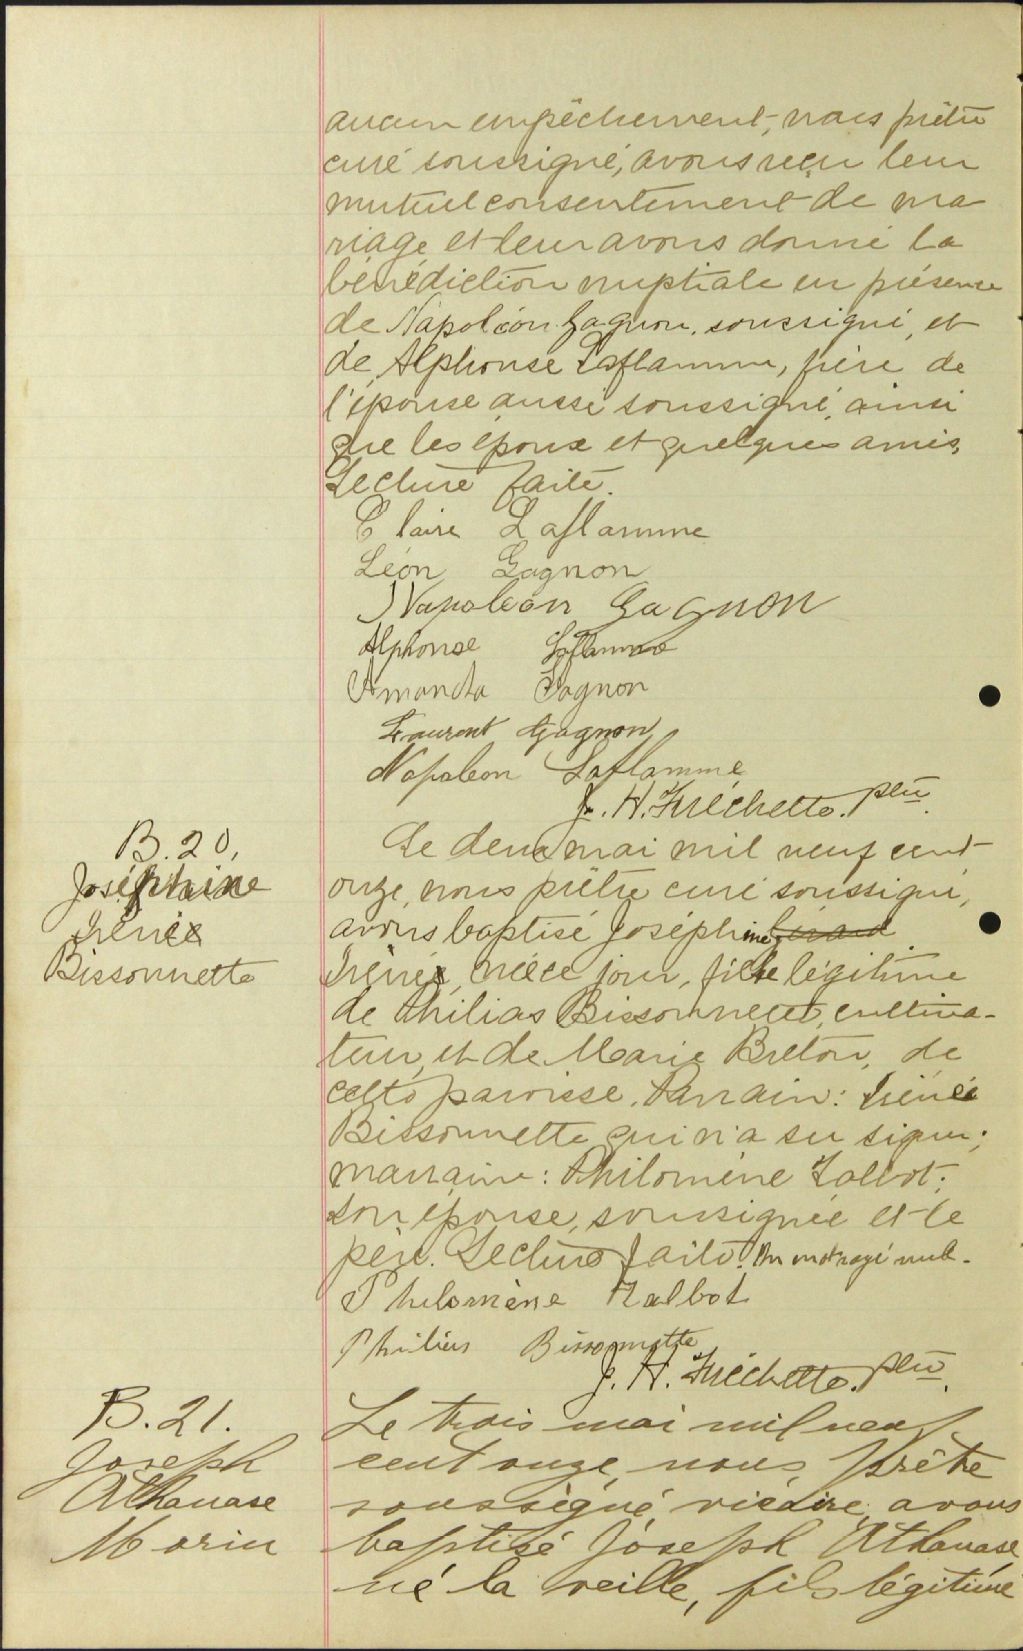 aucun empêchement, nous prêtre
curé soussigné, avons reçu leur
mutuel consentement de ma
riage et leur avons donné la
bénédiction nuptiale en présence
de Napoléon Gagnon, soussigné, et
de Alphonse Laflamme, frère de
l'épouse aussi soussigné, ainsi
que les époux et quelques amis,
Lecture faite.
Claire Laflamme
Léon Gagnon
Napoléon Gagnon
Alphonse Laflamme
Amanda Gagnon
Laurent Gagnon
Napoleon Laflamme
J. H. Fréchette. ptre
B. 20,
Joséphine
Irénée
Bissonnette
Le deux mai mil neuf cent
onze, nous prêtre curé soussigné,
avons baptisé Joséphine
Irénée, née ce jour, fille légitime
de Philias Bissonnette, cultiva-
teur, et de Marie Breton, de
cette paroisse. Parrain: Irénée
Bissonnette qui n'a su signer;
marraine: Philomène Talbot,
son épouse, soussignée et le
père. Lecture faite. Un mot rayé nul.
Philomène Talbot
Philias Bissonnette
J. H. Fréchette. ptre.
B. 21.
Joseph
Athanase
Morin
Le trois mai mil neuf
cent onze, nous, prêtre
soussigné, vicaire, avons
baptisé Joseph Athanase
né la veille, fils légitime